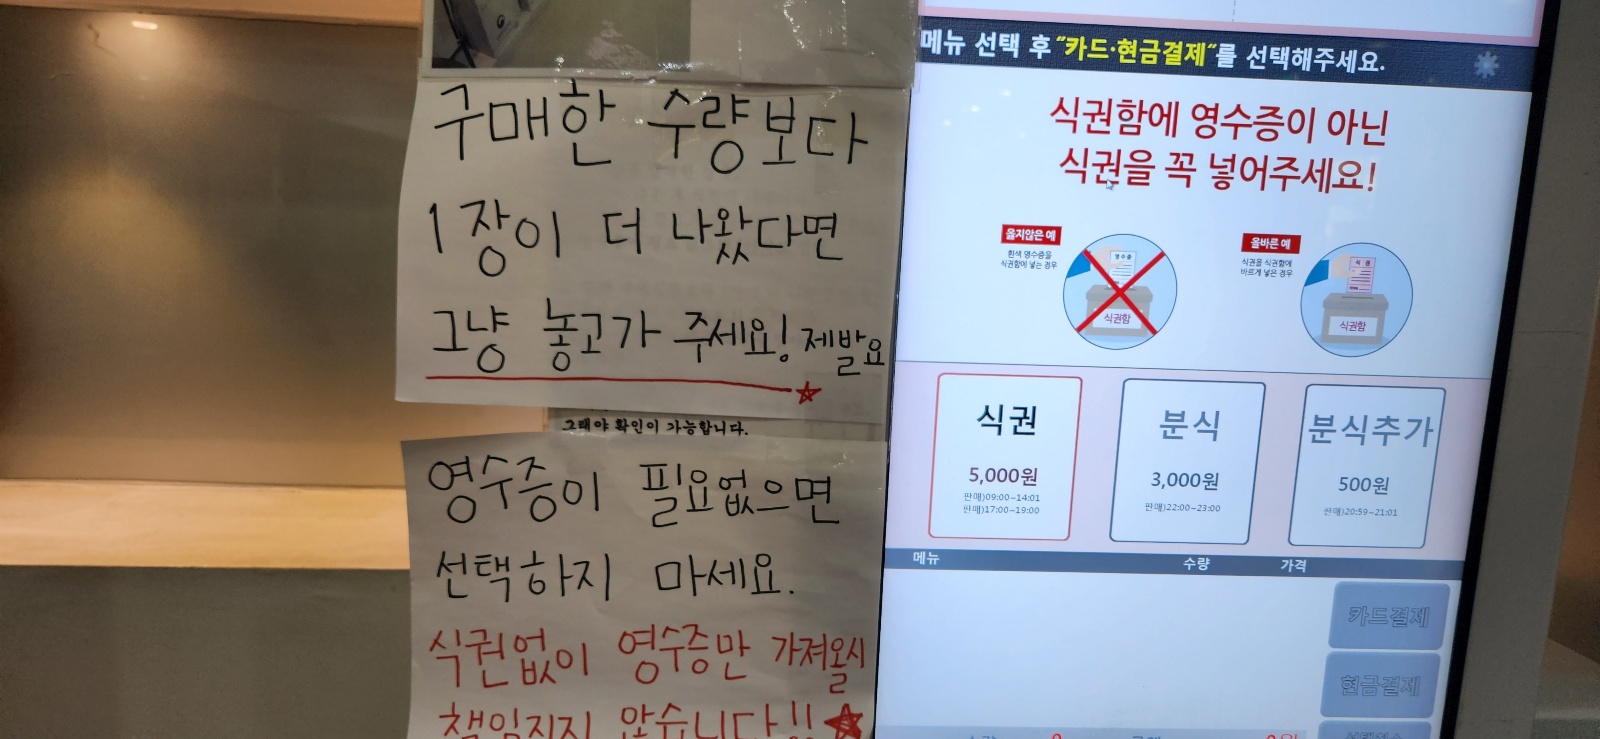 구매한 수량보다
1장이 더 나왔다면
그냥 놓고가 주세요! 제발요
그래야 확인이 가능합니다.
영수증이 필요없으면
선택하지 마세요.
식권없이 영수증만 가져올시
책임지지 않습니다!!
메뉴 선택 후 "카드·현금결제"를 선택해주세요.
식권함에 영수증이 아닌
식권을 꼭 넣어주세요!
옳지않은 예
흰색 영수증을
식권함에 넣는 경우
영수증
식권함
올바른 예
식권을 식권함에
바르게 넣은 경우
식권
식권함
식권
5,000원
판매)09:00~14:01
판매)17:00~19:00
분식
3,000원
판매)22:00~23:00
분식추가
500원
판매)20:59~21:01
메뉴 수량 가격
카드결제
현금결제